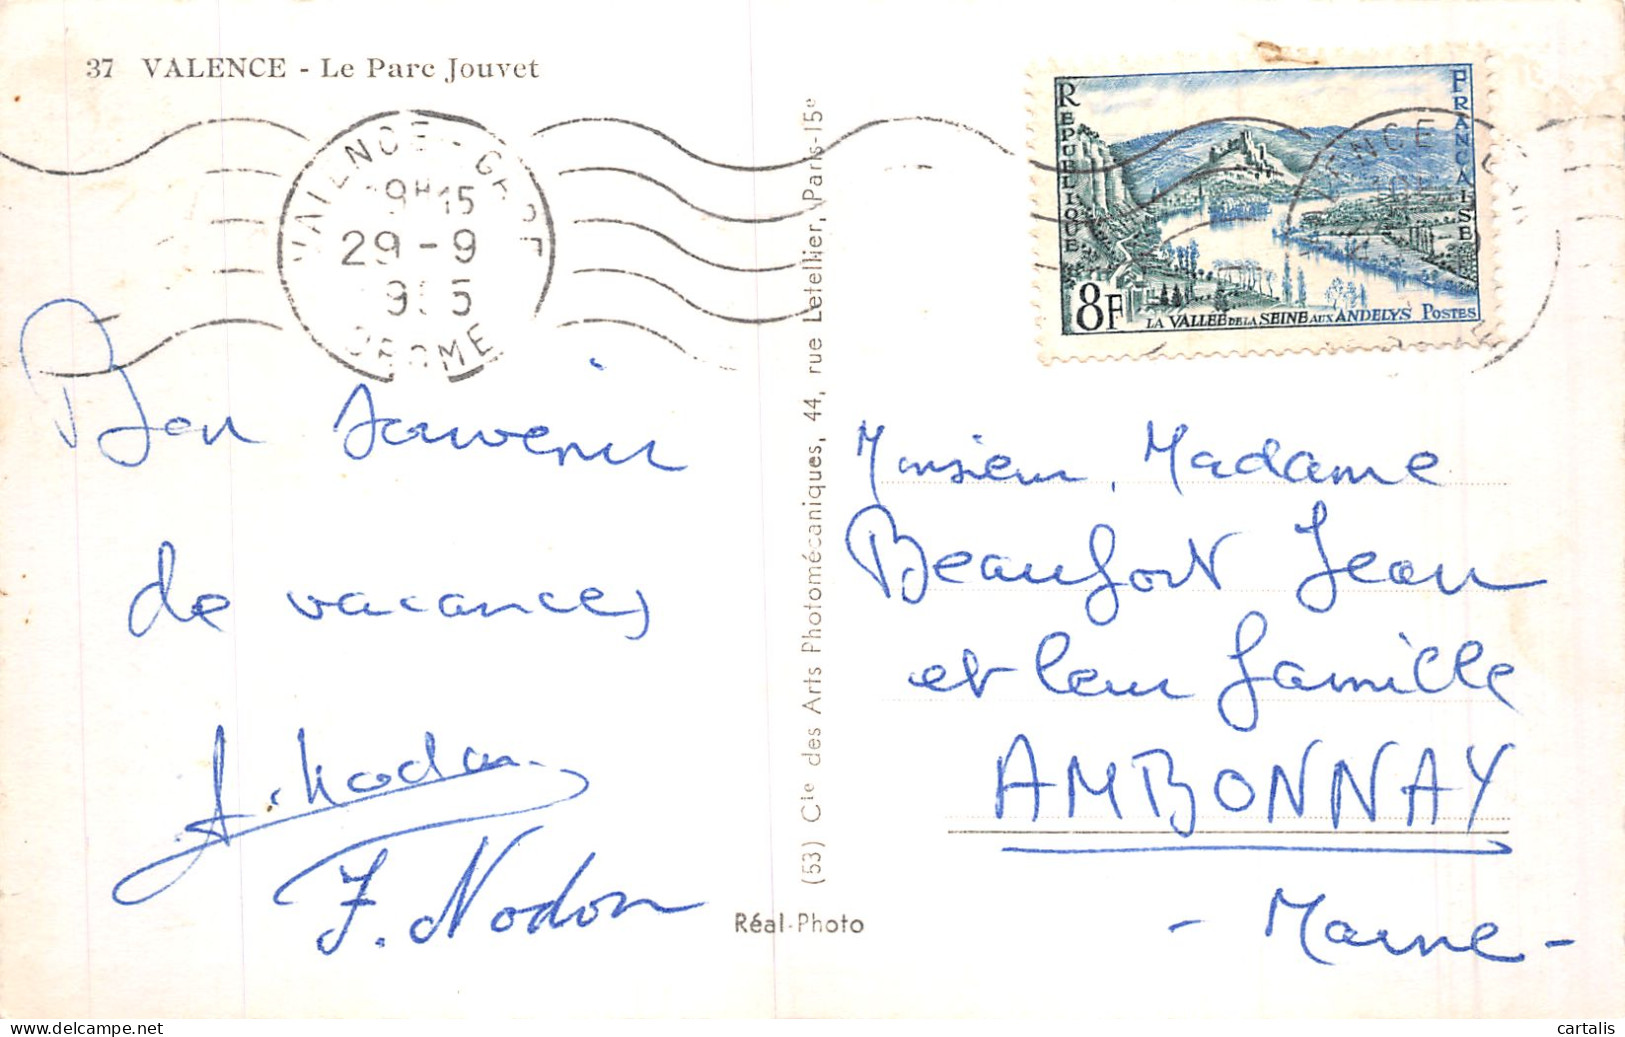 37 VALENCE - Le Parc Jouvet
VALENCE - GARE
19H15
29-9
DROME
REPUBLIQUE FRANÇAISE
8F
LA VALLÉE DE LA SEINE AUX ANDELYS POSTES
Bon souvenir
de vacances
Nodon
J. Nodon
(53) Cie des Arts Photomécaniques, 44, rue Letellier, Paris-15e
Réal-Photo
Monsieur, Madame
Beaufort Jean
et leur famille
AMBONNAY
- Marne -
delcampe.net
cartalis